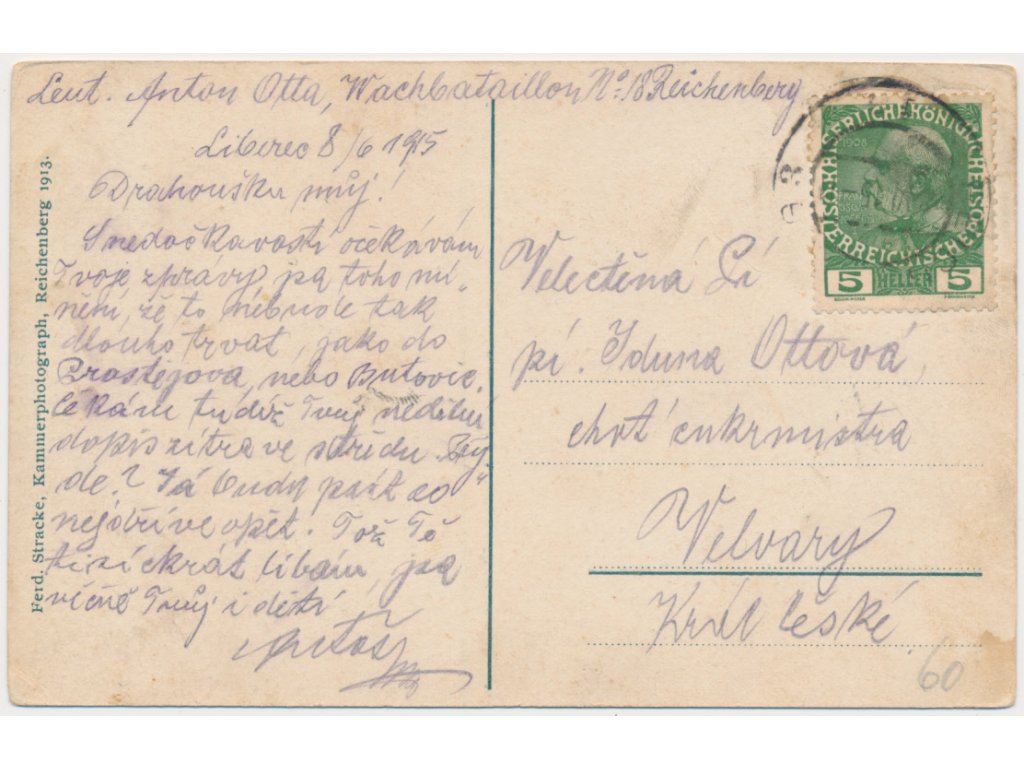 Leut. Anton Otta, Wachbataillon No. 18 Reichenberg
Liberec 8/6 1915
Drahoušku můj!
S nedočkavostí očekávám
Tvoje zprávy, jsa toho mí-
nění, že to nebude tak
dlouho trvat, jako do
Prostějova, nebo Butovic.
Čekám tudíž Tvůj nedělní
dopis zítra ve středu.
de? Já budu psát co
nejdříve opět. Tož Tě
tisíckrát líbám, jsa
věčně Tvůj i dětí
Antoš
Ferd. Stracke, Kammerphotograph, Reichenberg 1913.
Velectěná Pí
pí. Iduna Ottová,
choť cukrmistra
Velvary
Král České
60
KAISERLICHE KÖNIGLICHE
ÖSTERREICHISCHE POST
1908
5 HELLER 5